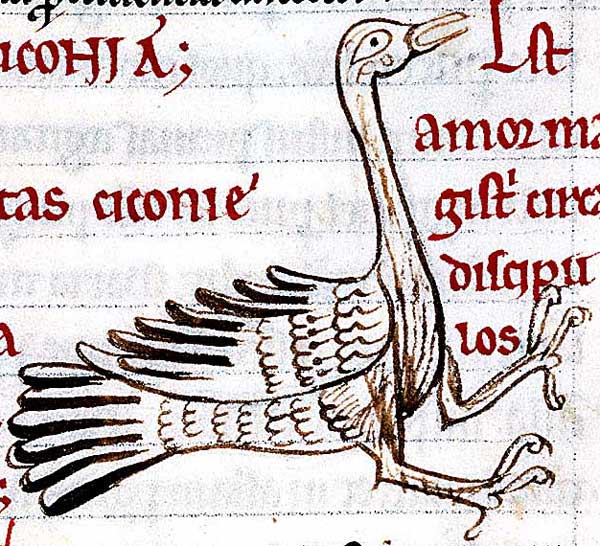 icoHIA;
Est
amor ma
tas ciconie
gist circa
discipu
los
a